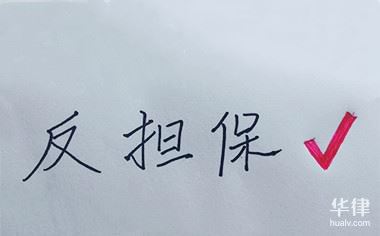 反担保
华律
hualv.com